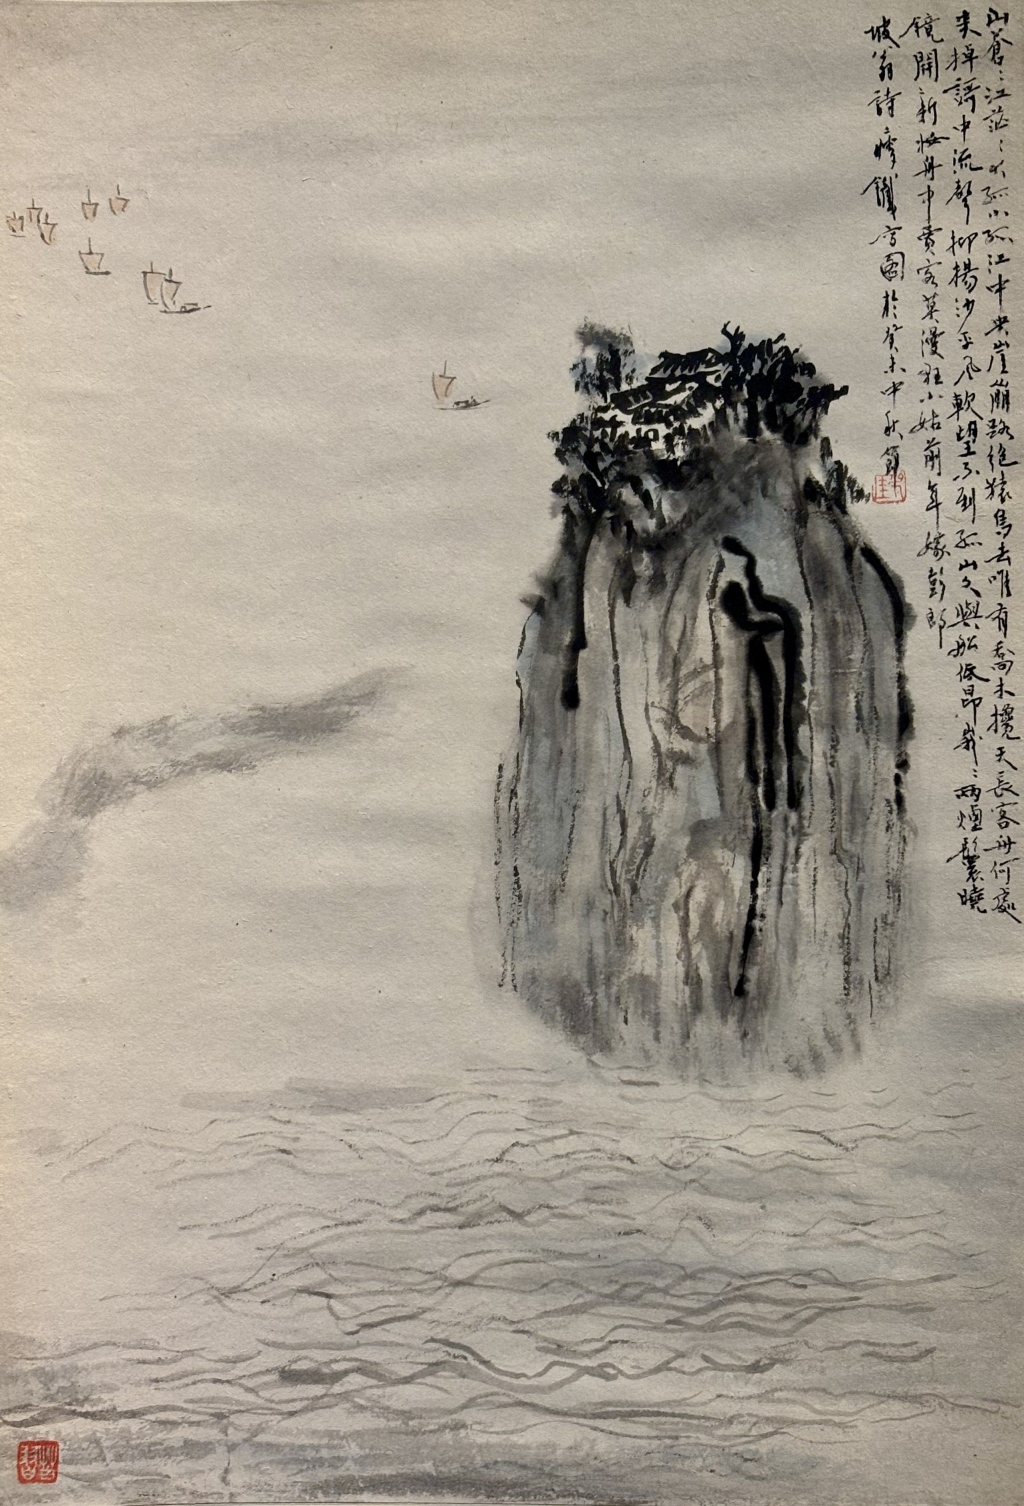 山蒼〻江茫〻大孤小孤江中央崖崩路絶猿鳥去唯有喬木攙天長客舟何處
来棹謌中流聲抑揚沙平風軟望不到孤山久與船低昂峩〻兩煙鬟曉
鏡開新妝舟中賈客莫漫狂小姑前年嫁彭郎
坡翁詩瘦鐵寫圖於癸未中秋節